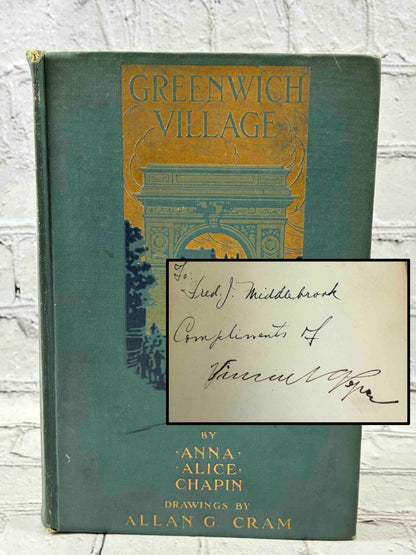 GREENWICH
VILLAGE
To:
Fred. J. Middlebrook
Compliments of
Vincent Pepe
BY
·ANNA·
·ALICE·
CHAPIN
DRAWINGS BY
ALLAN G. CRAM